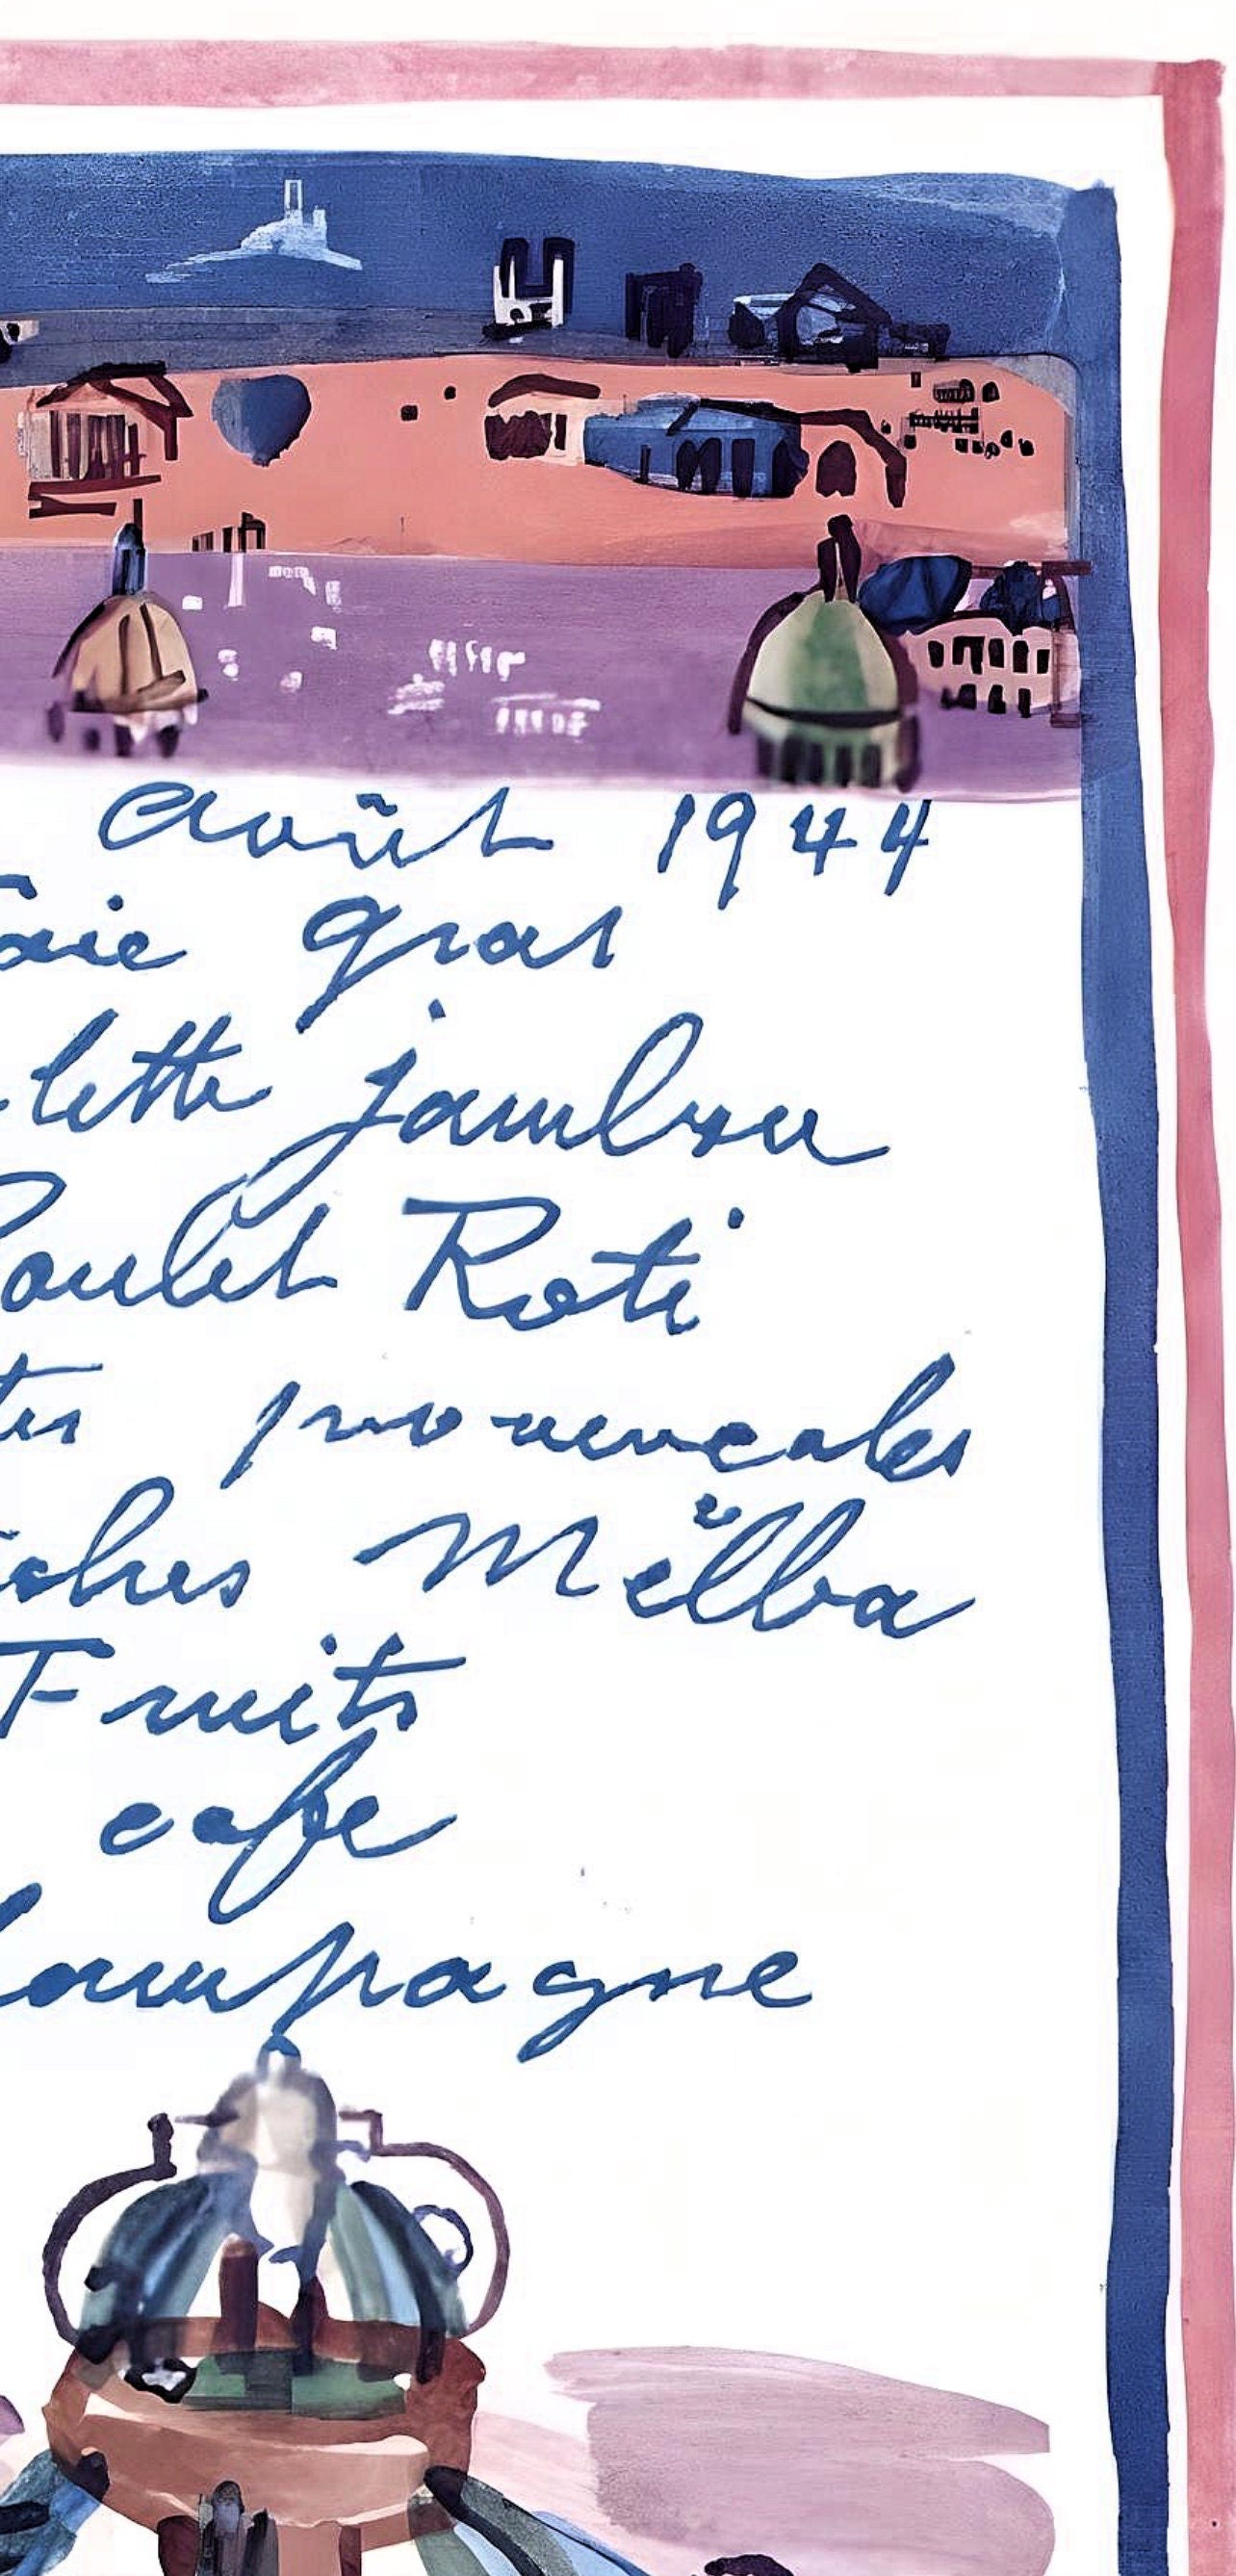 Août 1944
oie gras
lette jambon
Poulet Roti
tes provencales
ches Melba
Fruits
cafe
hampagne